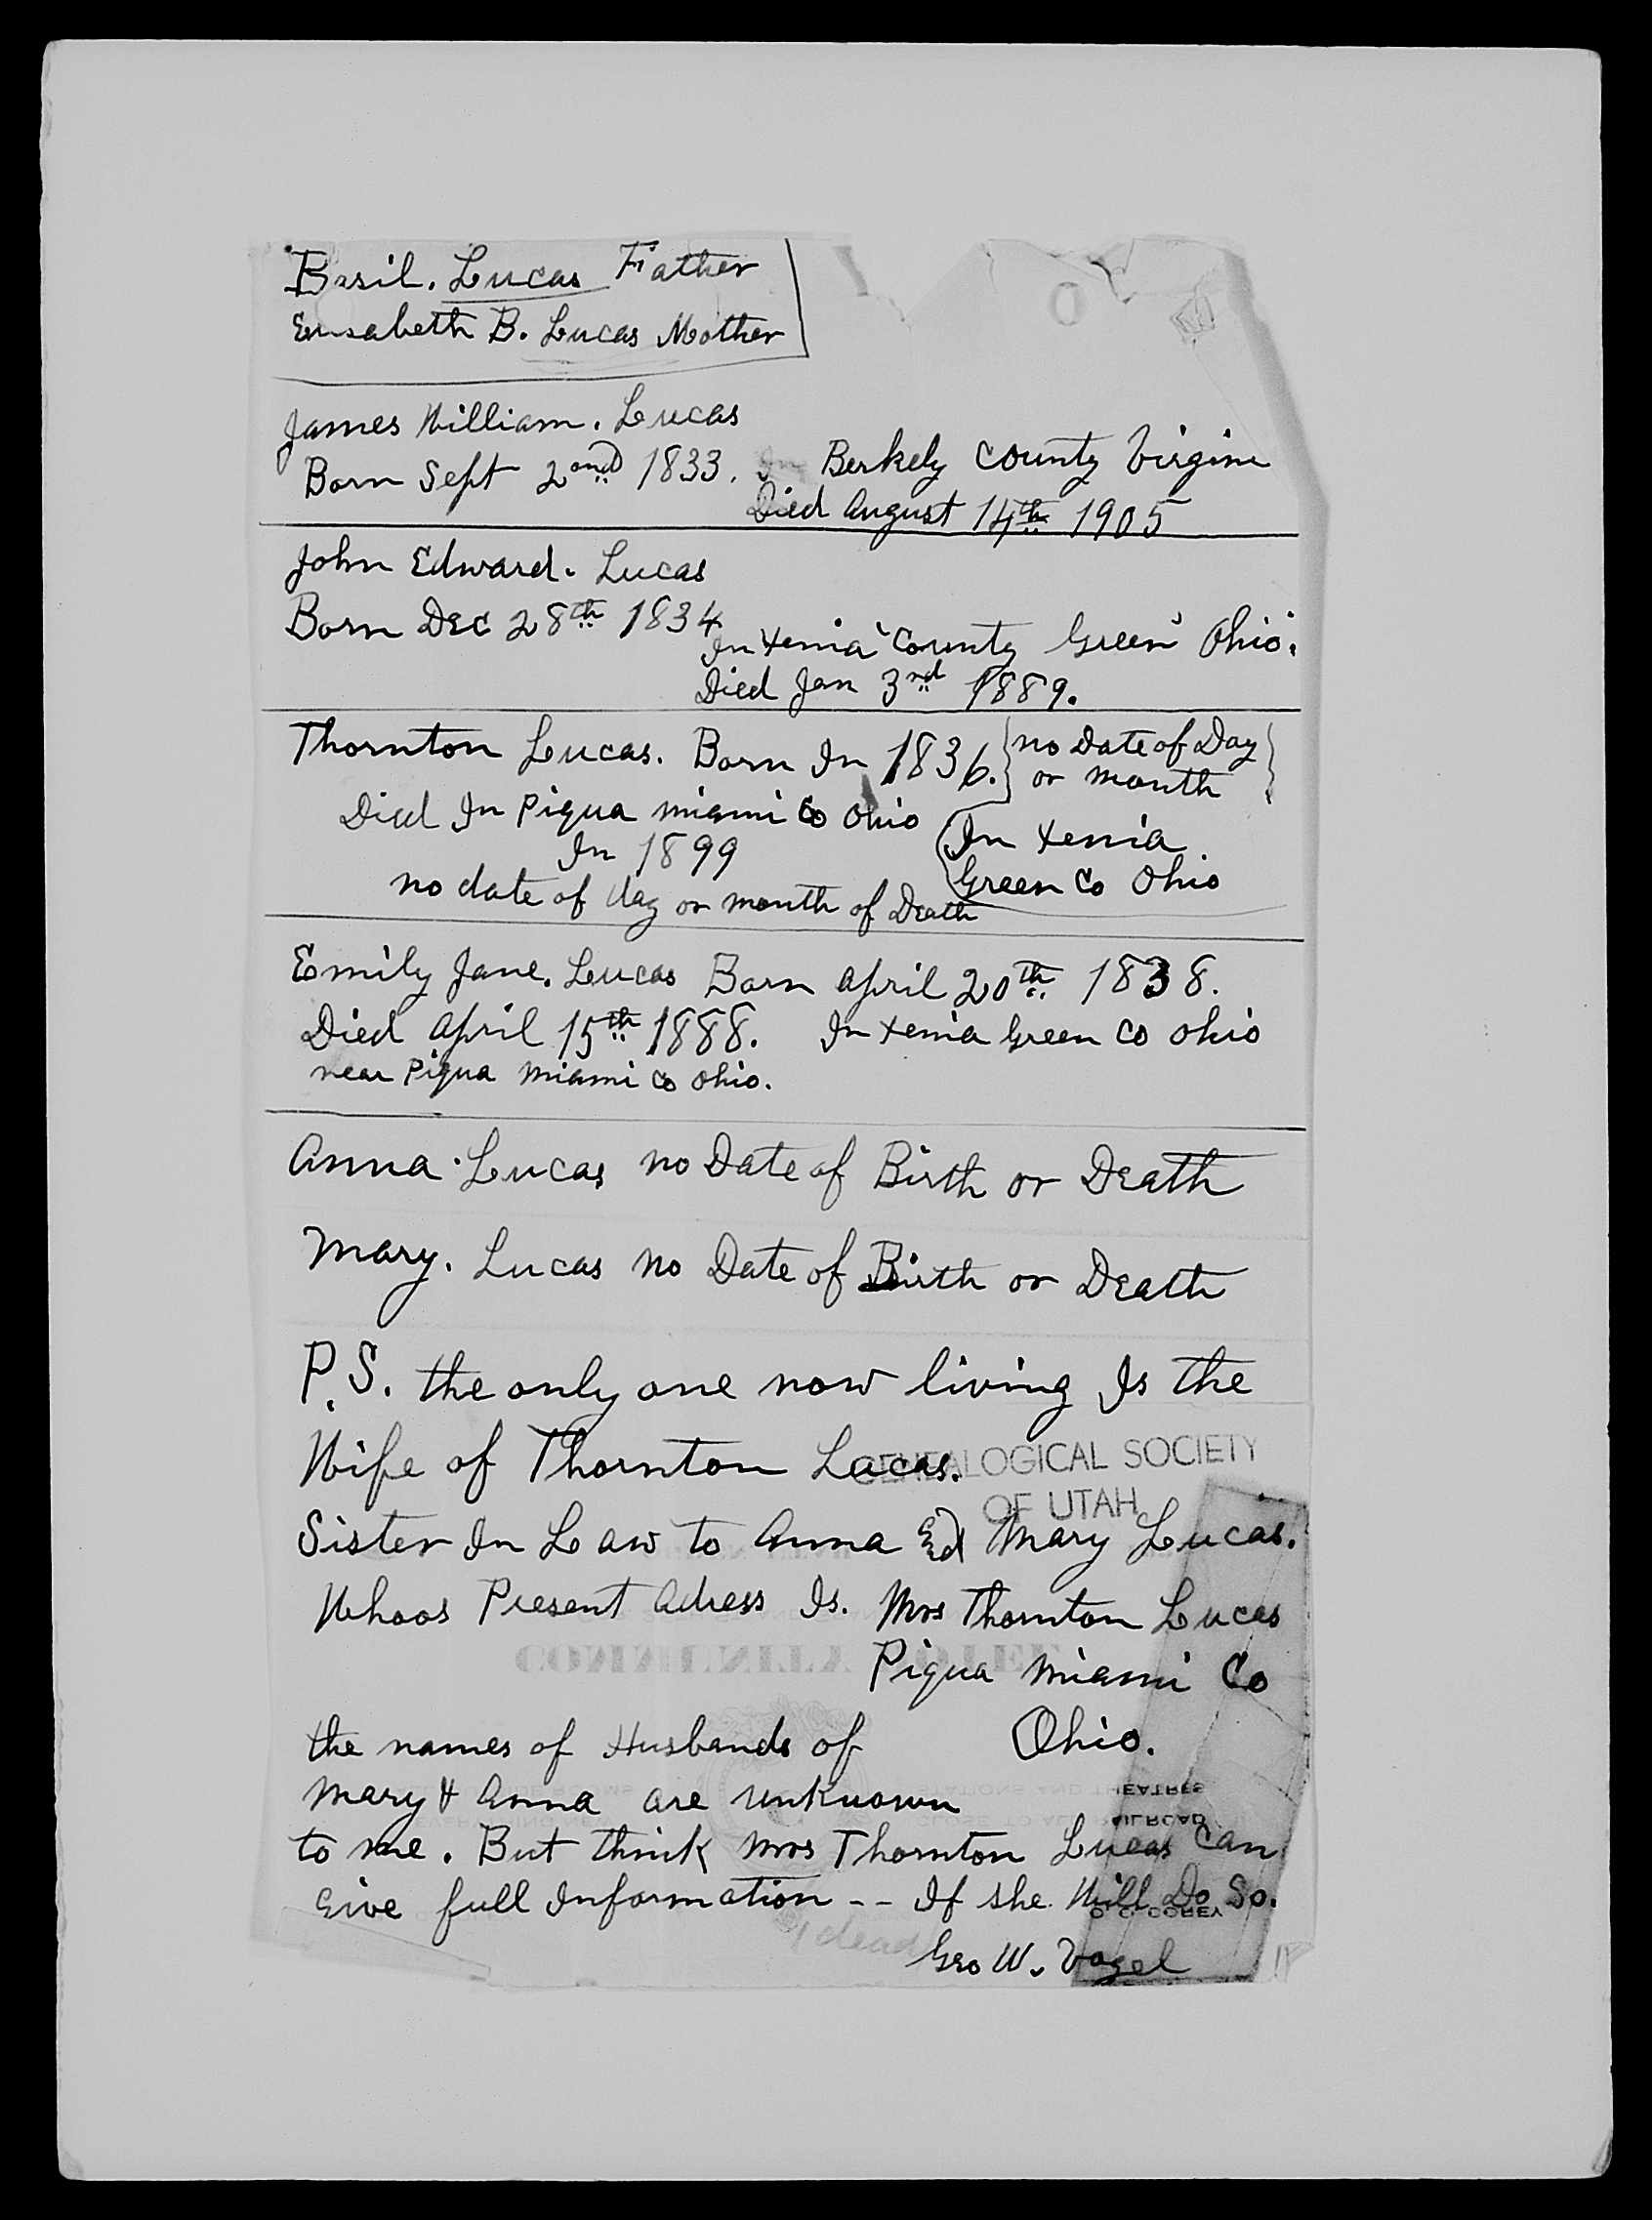 Basil. Lucas Father
Ensabeth B. Lucas Mother
James William. Lucas
Born Sept 2ond 1833. In Berkely County Virgini
Died August 14th 1905
John Edward. Lucas
Born Dec 28th 1834
In Xenia County Green Ohio.
Died Jan 3rd 1889.
Thornton Lucas. Born In 1836. no Date of Day
or month
Died In Piqua miami Co Ohio
In Xenia
In 1899
Green Co Ohio
no date of day or month of Death
Emily Jane. Lucas Born April 20th 1838.
Died April 15th 1888. In Xenia Green Co Ohio
near Piqua Miami Co Ohio.
Anna. Lucas no Date of Birth or Death
Mary. Lucas no Date of Birth or Death
P.S. the only one now living Is the
Wife of Thornton Lucas.
GENEALOGICAL SOCIETY
OF UTAH
Sister In Law to Anna Ed Mary Lucas.
Whoos Present Adress Is. Mrs Thornton Lucas
Piqua Miami Co
Ohio.
the names of Husbands of
Mary & Anna are unknown
to me. But think Mrs Thornton Lucas Can
Give full Information -- If she Will Do So.
dead
Geo W. Vogel